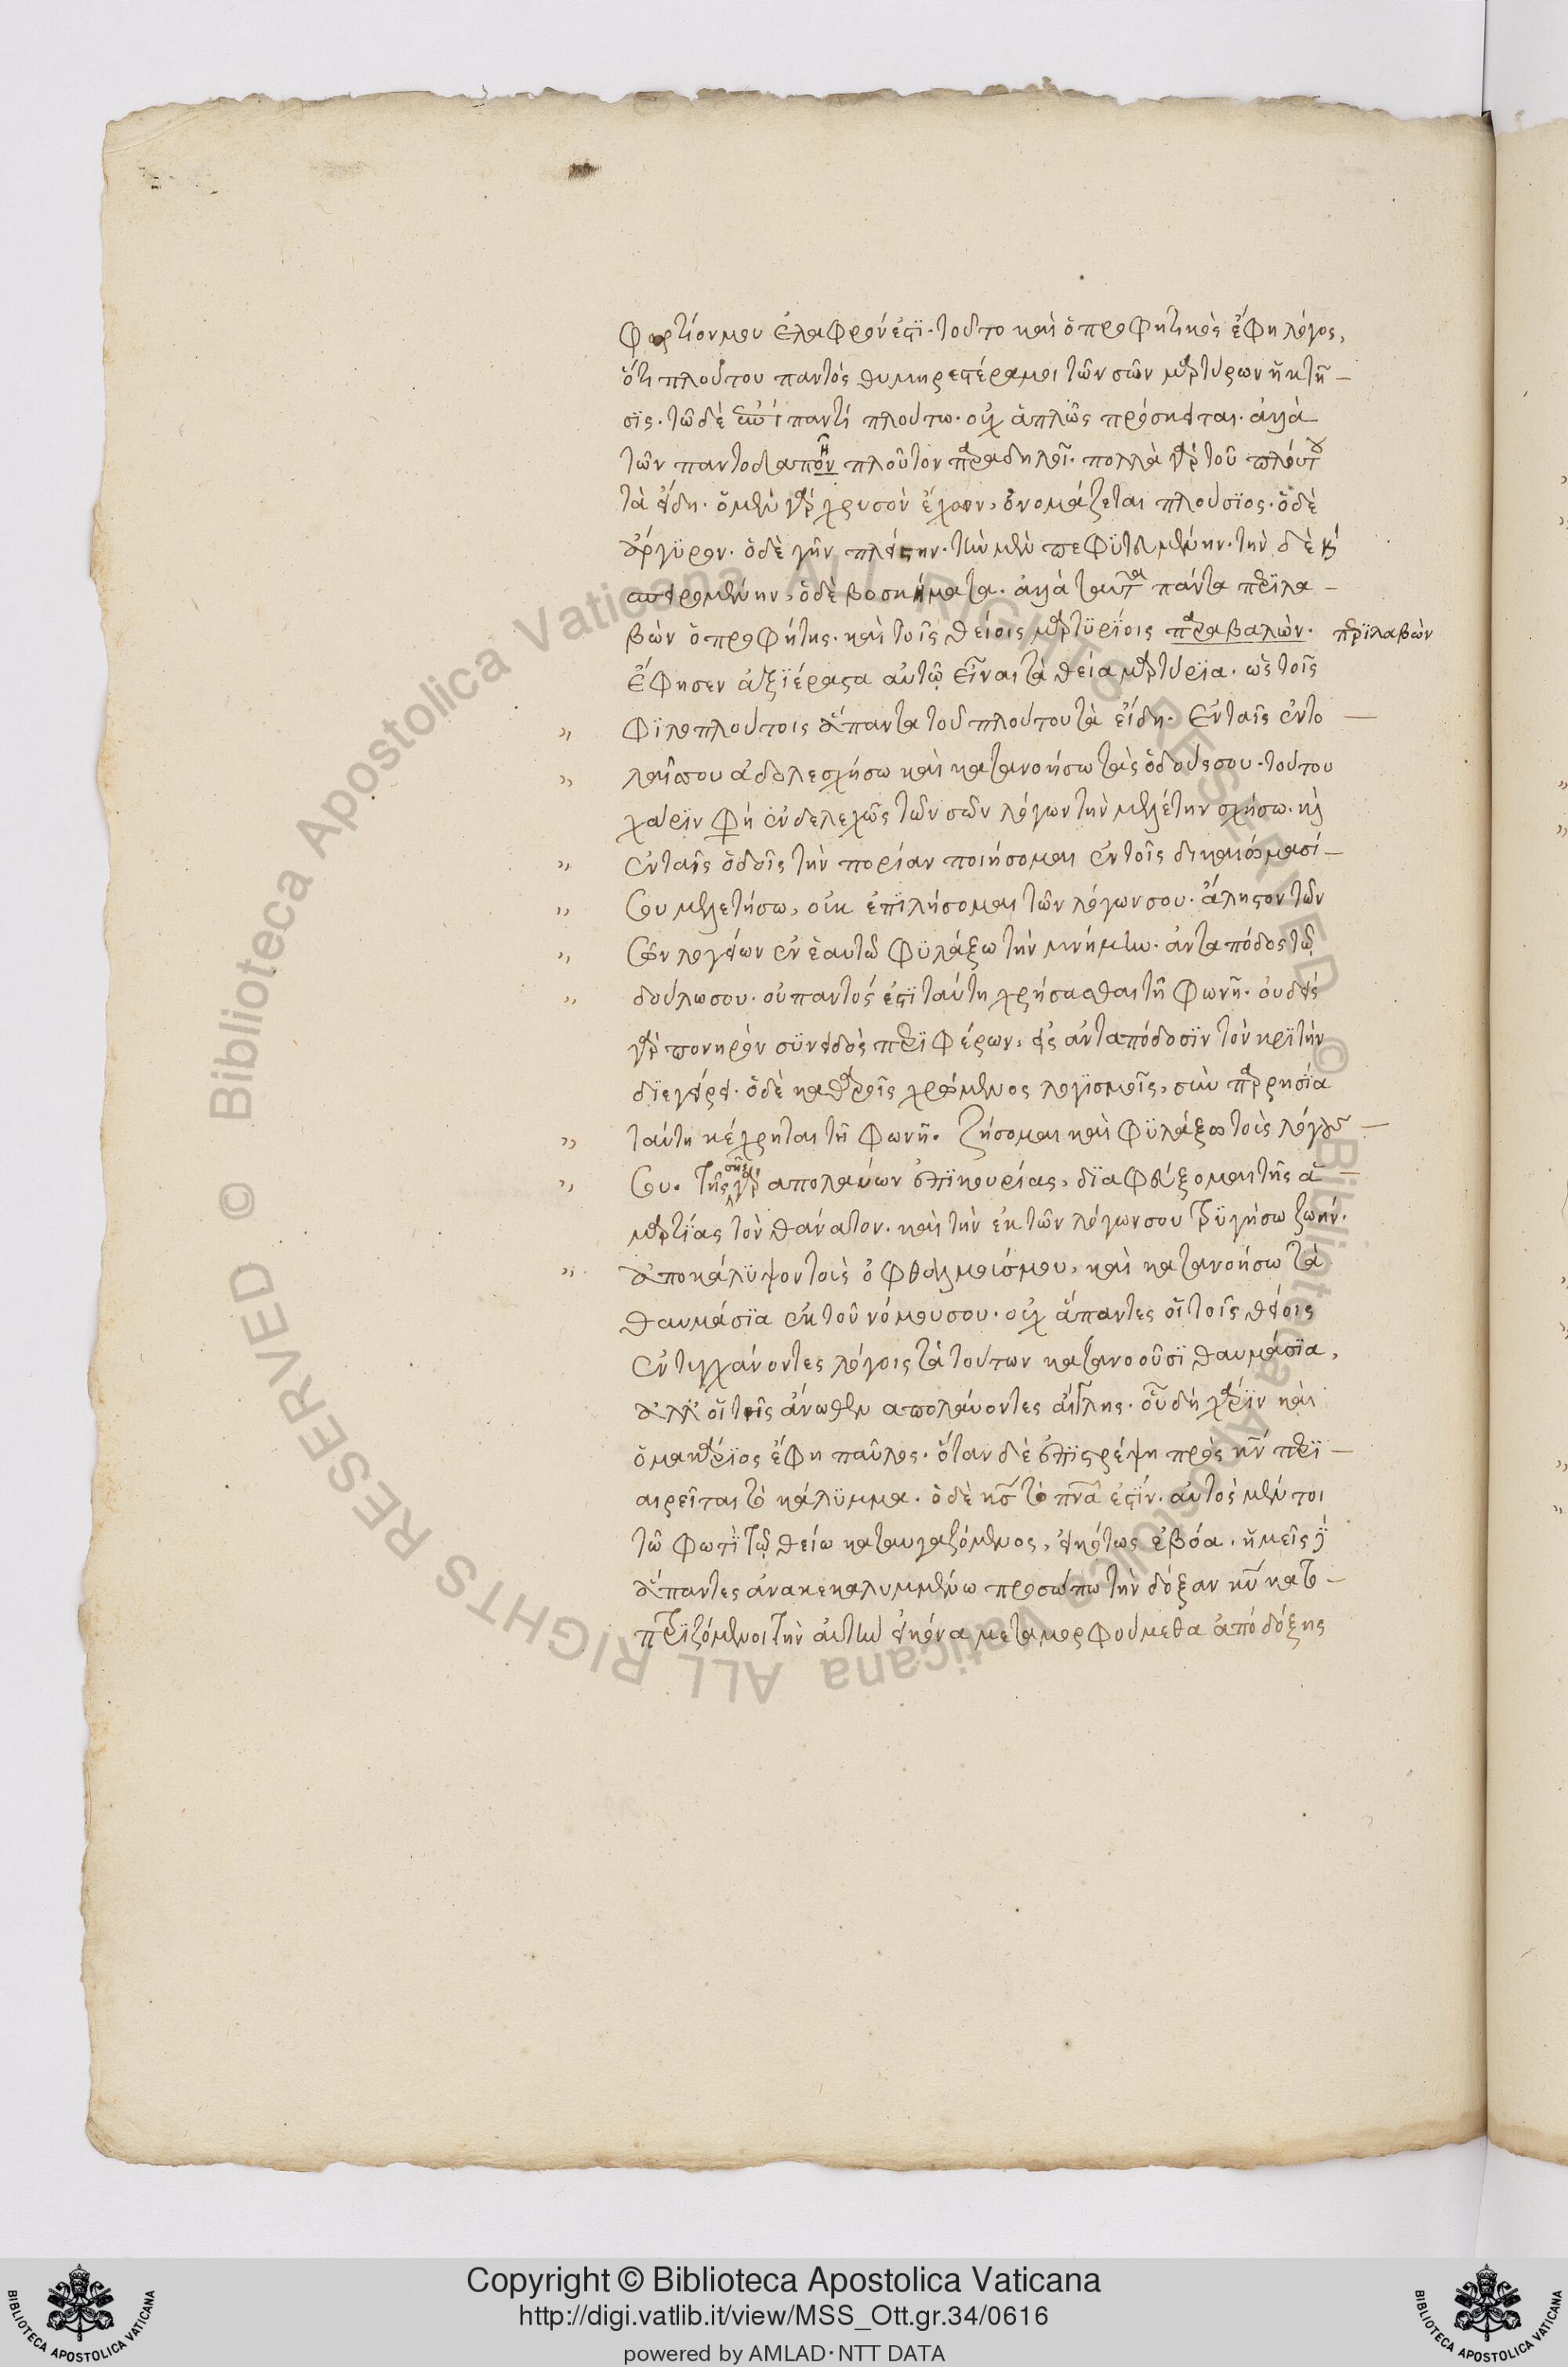 φορτίον μου ἐλαφρόν ἐστϊ· τοῦτο καὶ ὁ προφητικὸς ἔφη λόγος,
ὅτι πλούτου παντός θυμηρεστέρα μοι τῶν σῶν μαρτύρων ἡ κτῆ–
σϊς· τῶ δὲ παντί πλούτω· οὐχ ἁπλῶς πρόσκειται· ἀλλὰ
τῶν παντοδαπὸν πλοῦτον παραδηλοῖ· πολλὰ γὰρ τοῦ πλούτου
τὰ εἴδη· ὁ μὲν γὰρ χρυσὸν ἔχων, ὀνομάζεται πλούσϊος· ὁ δὲ
ἄργϋρον· ὁ δὲ γῆν πλείστην· τὴν μὲν πεφϋτευμένην· τὴν δὲ καὶ
σπειρομένην, ὁ δὲ βοσκήματα· ἀλλὰ ταῦτα πάντα περϊλα–
βὼν ὁ προφήτης· καὶ τοῖς θείοις μαρτϋρίοις παραβαλὼν· περϊλαβὼν
ἔφησεν ἀξϊέραστα αὐτῶ εἶναι τὰ θεία μαρτύρϊα· ὡς τοῖς
„ φϊλοπλούτοις ἅπαντα τοῦ πλούτου τὰ εἴδη· Ἐν ταῖς ἐντο–
„ λαῖς σου ἀδολεσχήσω καὶ κατανοήσω τὰς ὁδούς σου· τούτου
χάρϊν φὴ ἐνδελεχῶς τῶν σῶν λόγων τὴν μελέτην σχήσω· κὶ
„ ἐν ταῖς ὁδοῖς τὴν πορίαν ποιήσομαι ἐν τοῖς δικαιώμασί–
„ σου μελετήσω, οὐκ ἐπϊλήσομαι τῶν λόγων σου· ἄληστον τῶν
„ σῶν λογείων ἐν ἑαυτῶ φϋλάξω τὴν μνήμην· ἀνταπόδος τῶ
„ δούλω σου· οὐ παντός ἐστϊ ταύτη χρήσασθαι τῆ φωνῆ· οὐδείς
γὰρ πονηρὸν σϋνειδὸς περϊφέρων, εἰς ἀνταπόδοσϊν τὸν κρϊτὴν
δϊεγείρει· ὁ δὲ καθαροῖς χρώμενος λογϊσμοῖς, σὺν παρρησία
„ ταύτη κέχρηται τῆ φωνῆ· Ζήσομαι καὶ φϋλάξω τοὶς λόγους–
„ σου· τῆς σῆς γὰρ απολαύων ἐπϊκουρίας, δϊαφεύξομαι τῆς ἁ–
μαρτίας τὸν θάνατον· καὶ τὴν ἐκ τῶν λόγων σου τρϋγήσω ζωήν·
„ ἀποκάλϋψον τοὶς ὀφθαλμοίς μου, καὶ κατανοήσω τὰ
θαυμάσϊα ἐκ τοῦ νόμου σου· οὐχ ἅπαντες οἱ τοῖς θείοις
ἐντιγχάνοντες λόγοις τὰ τούτων κατανοοῦσϊ θαυμάσϊα,
ἀλλ' οἱ τῆς ἄνωθεν απολαύοντες αἴγλης· οὗ δὴ χάρϊν καὶ
ὁ μακάρϊος ἔφη παῦλος· ὅταν δὲ ἐπϊστρέψη πρὸς κν̄ περϊ–
αιρεῖται τὸ κάλϋμμα· ὁ δὲ κσ̄ τὸ πνᾶ ἐστϊν· αὐτὸς μέντοι
τῶ φωτὶ τῶ θείω καταυγαζόμενος, εἰκότως ἐβόα· ἡμεῖς γὰρ
ἅπαντες ἀνακεκαλυμμένω προσώπω τὴν δόξαν κῡ κατο–
πτρϊζόμενοι τὴν αὐτὴν εἰκόνα μεταμορφούμεθα ἀπὸ δόξης
Copyright © Biblioteca Apostolica Vaticana
http://digi.vatlib.it/view/MSS_Ott.gr.34/0616
powered by AMLAD·NTT DATA